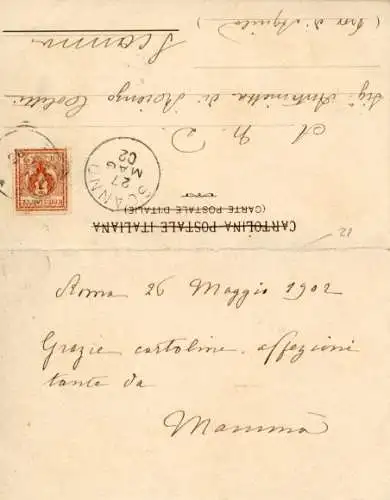 CARTOLINA POSTALE ITALIANA
(CARTE POSTALE D'ITALIE)
12
SCANNO
27
MAG
02
A N. D.
Sig. Antonietta di Lorenzo Colelli
Scanno
(Prov di Aquila)
Roma 26 Maggio 1902
Grazie cartoline, affezioni
tante da
Mammà